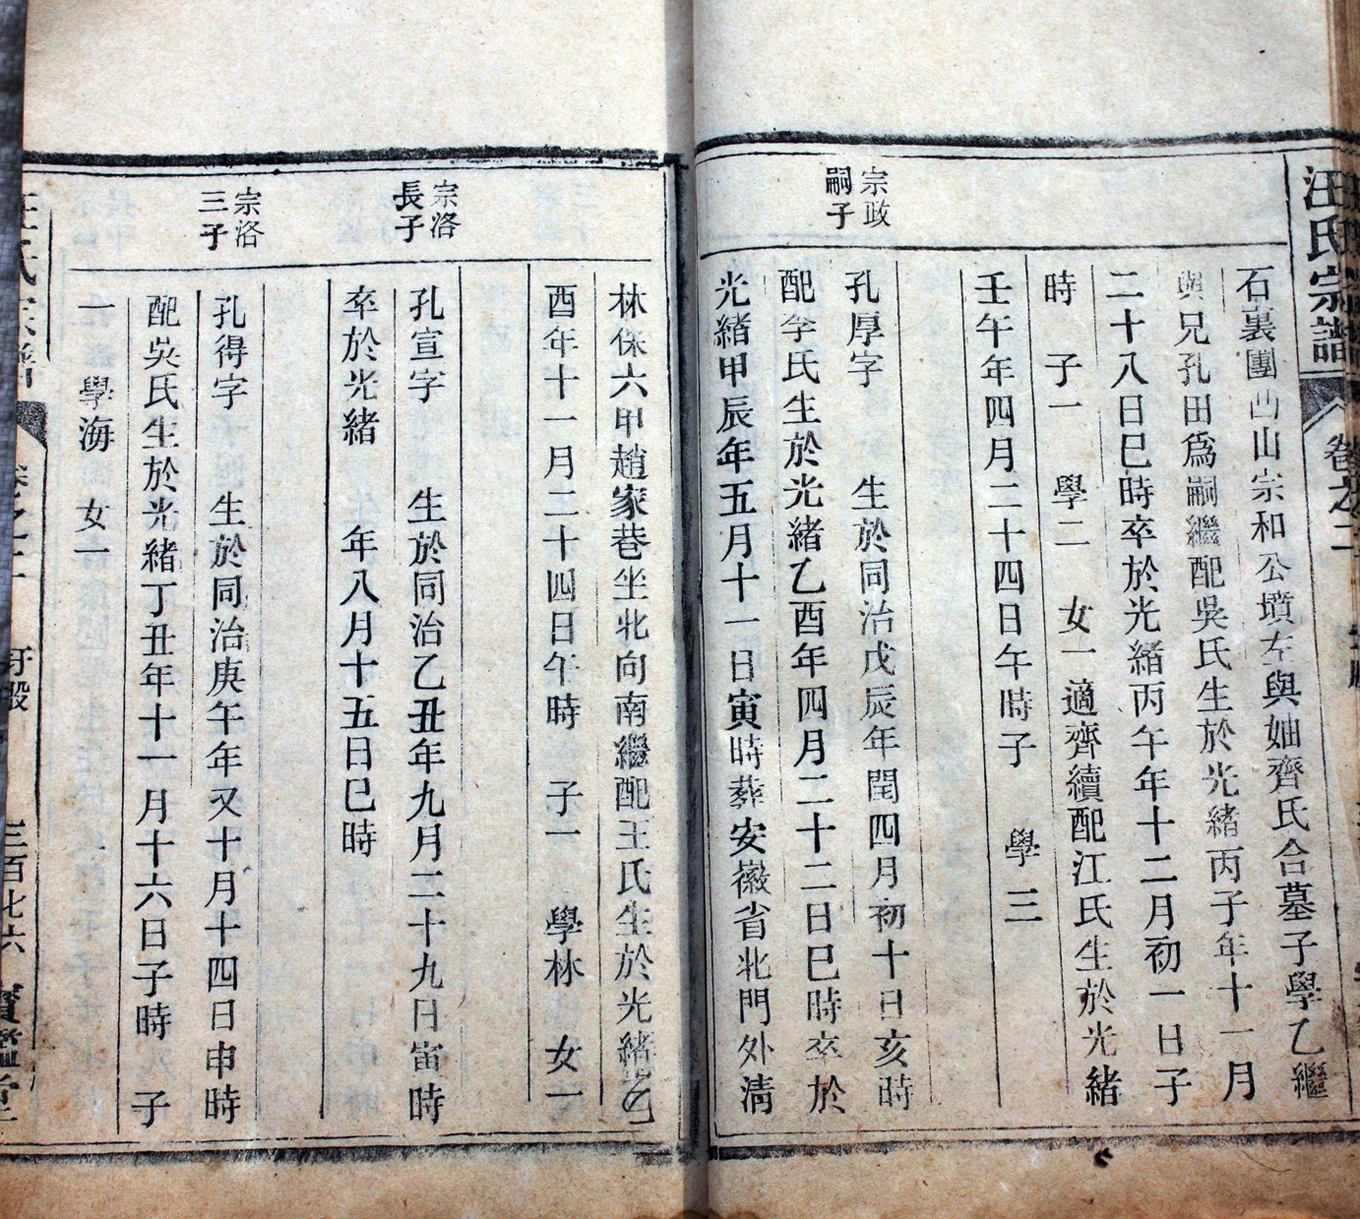 汪氏宗譜
卷之二
石裏團西山宗和公墳左與妯齊氏合墓子學乙繼
與兄孔田爲嗣繼配吳氏生於光緒丙子年十一月
二十八日巳時卒於光緒丙午年十二月初一日子
時 子一 學二 女一適齊續配江氏生於光緒
壬午年四月二十四日午時子 學三
宗政
嗣子
孔厚字 生於同治戊辰年閏四月初十日亥時
配李氏生於光緒乙酉年四月二十二日巳時卒於
光緒甲辰年五月十一日寅時葬安徽省北門外淸
林保六甲趙家巷坐北向南繼配王氏生於光緒乙
酉年十一月二十四日午時 子一 學林 女一
宗洛
長子
孔宣字 生於同治乙丑年九月二十九日寅時
卒於光緒 年八月十五日巳時
宗洛
三子
孔得字 生於同治庚午年又十月十四日申時
配吳氏生於光緒丁丑年十一月十六日子時 子
一 學海 女一
三百七六